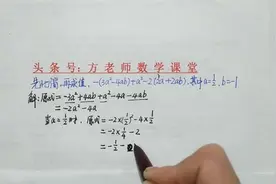 头条号：方老师数学课堂
先化简，再求值，-(3a²-4ab)+a²-2(2a+2ab)，其中a=1/2，b=-1
解：原式=-3a²+4ab+a²-4a-4ab
=-2a²-4a
当a=1/2时，原式=-2×(1/2)²-4×1/2
=-2×1/4-2
=-1/2-